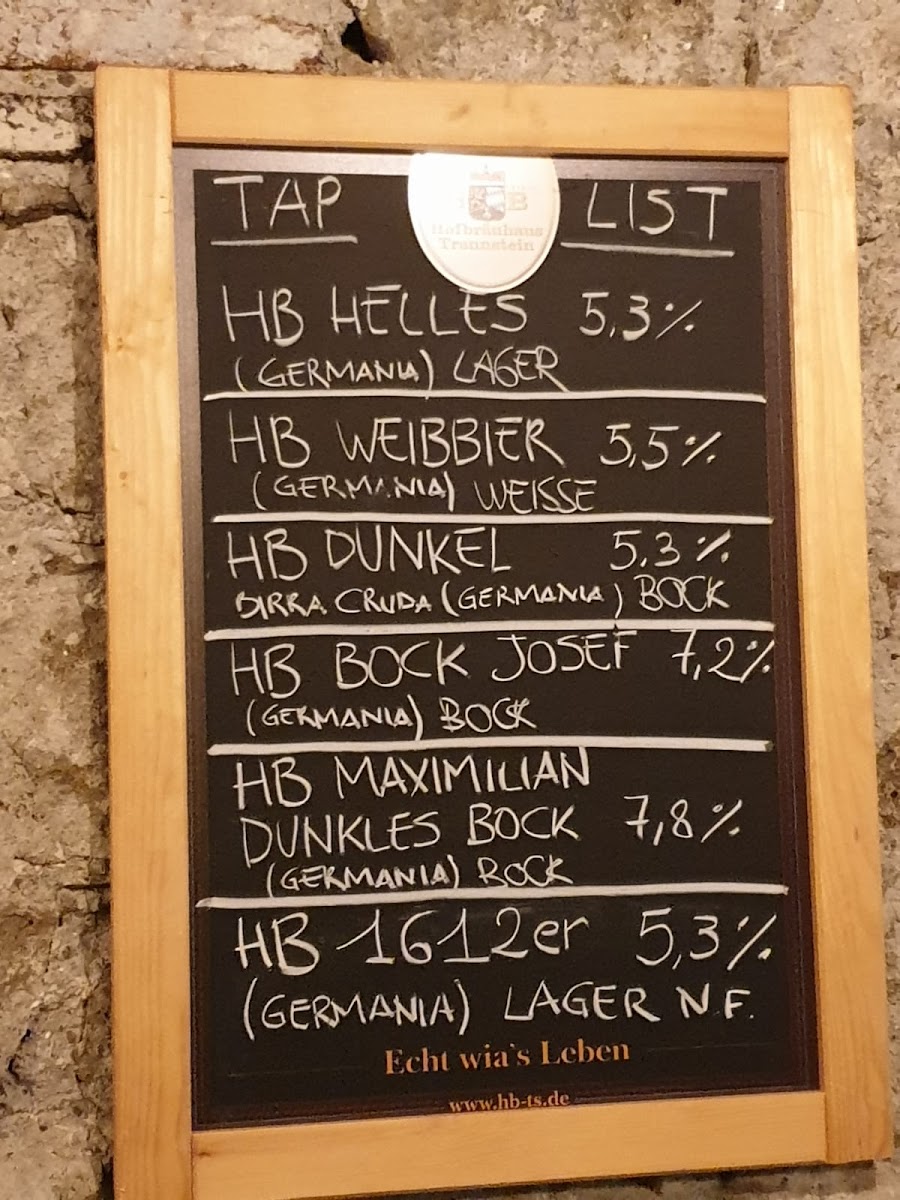 TAP LIST
Hofbräuhaus
Traunstein
HB HELLES 5,3%
(GERMANIA) LAGER
HB WEIBBIER 5,5%
(GERMANIA) WEISSE
HB DUNKEL 5,3%
BIRRA CRUDA (GERMANIA) BOCK
HB BOCK JOSEF 7,2%
(GERMANIA) BOCK
HB MAXIMILIAN
DUNKLES BOCK 7,8%
(GERMANIA) BOCK
HB 1612er 5,3%
(GERMANIA) LAGER N.F.
Echt wia's Leben
www.hb-ts.de